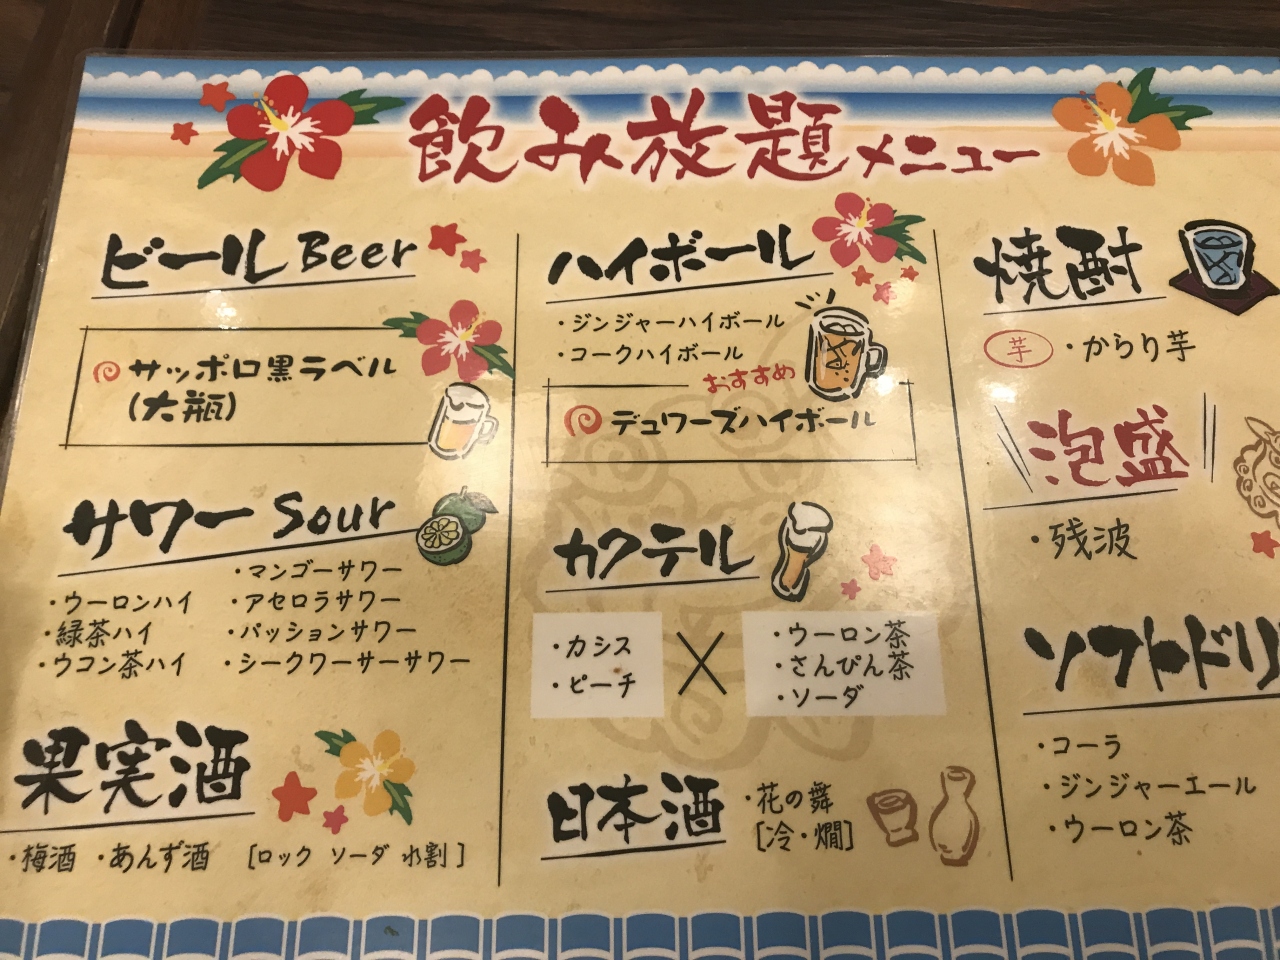 飲み放題メニュー
ビール Beer
サッポロ黒ラベル
(大瓶)
サワー Sour
・マンゴーサワー
・ウーロンハイ ・アセロラサワー
・緑茶ハイ ・パッションサワー
・ウコン茶ハイ ・シークワーサーサワー
果実酒
・梅酒 ・あんず酒 [ロック ソーダ 水割]
ハイボール
・ジンジャーハイボール
・コークハイボール
おすすめ
デュワーズハイボール
カクテル
・カシス
・ピーチ
×
・ウーロン茶
・さんぴん茶
・ソーダ
日本酒
・花の舞
[冷・燗]
焼酎
芋 ・からり芋
泡盛
・残波
ソフトドリ
・コーラ
・ジンジャーエール
・ウーロン茶